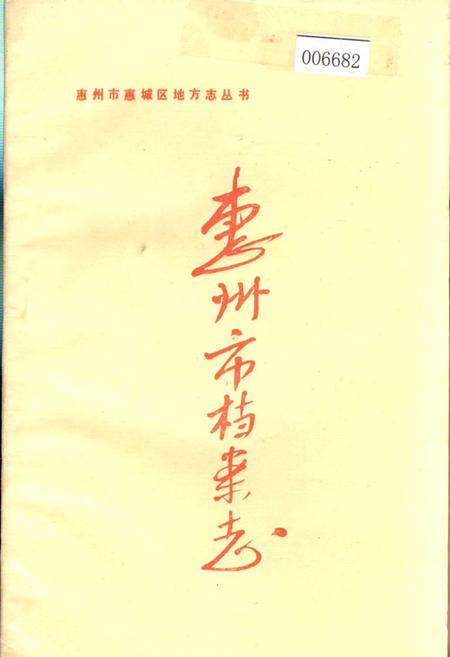 006682
惠州市惠城区地方志丛书
惠州市档案志